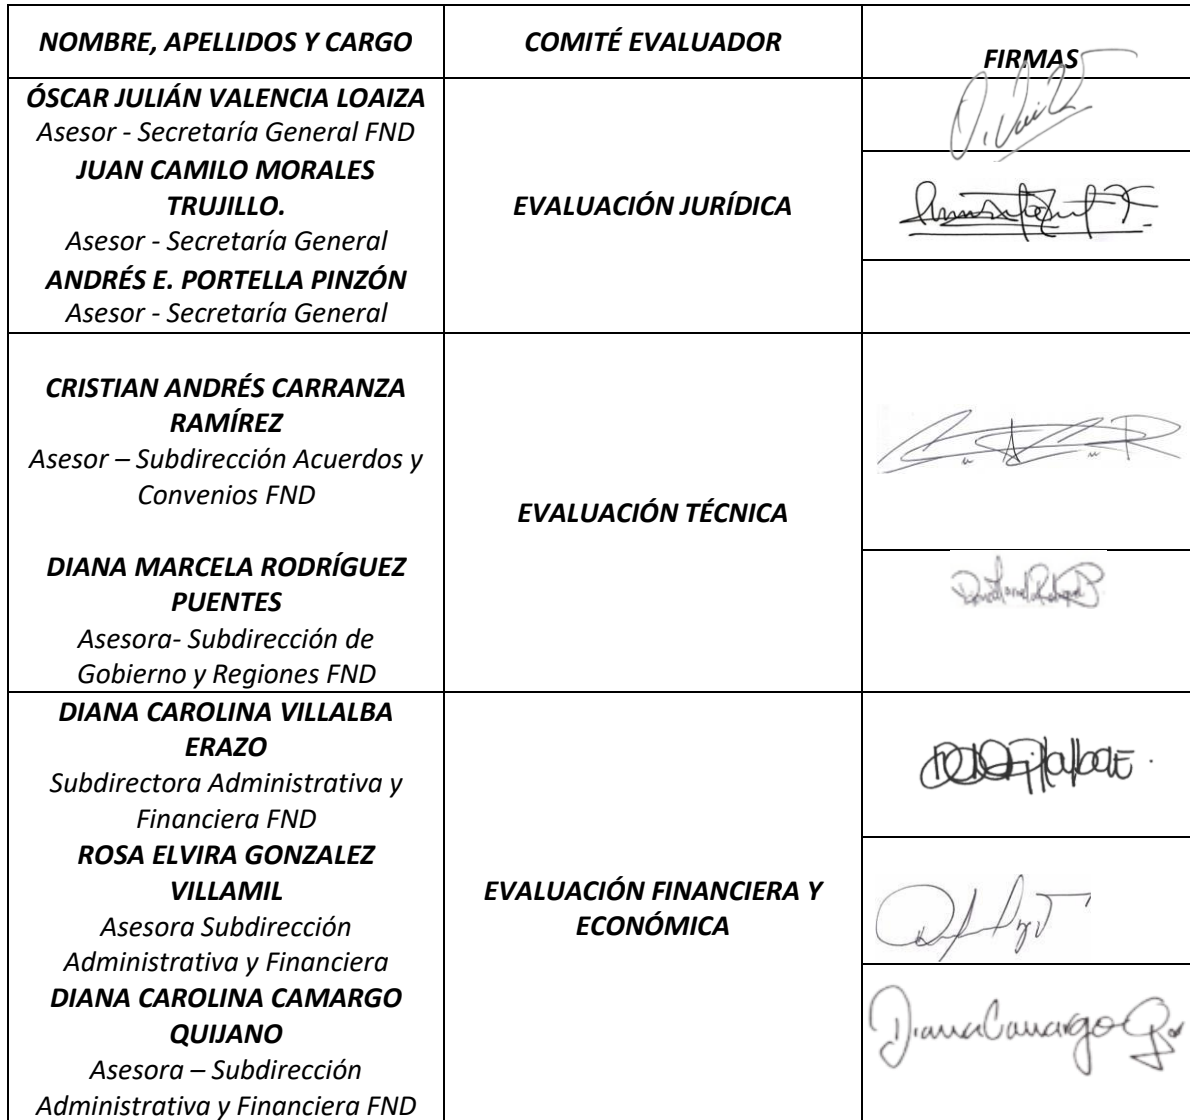 NOMBRE, APELLIDOS Y CARGO
COMITÉ EVALUADOR
FIRMAS
ÓSCAR JULIÁN VALENCIA LOAIZA
Asesor - Secretaría General FND
JUAN CAMILO MORALES
TRUJILLO.
Asesor - Secretaría General
ANDRÉS E. PORTELLA PINZÓN
Asesor - Secretaría General
EVALUACIÓN JURÍDICA
CRISTIAN ANDRÉS CARRANZA
RAMÍREZ
Asesor – Subdirección Acuerdos y
Convenios FND
DIANA MARCELA RODRÍGUEZ
PUENTES
Asesora- Subdirección de
Gobierno y Regiones FND
EVALUACIÓN TÉCNICA
DIANA CAROLINA VILLALBA
ERAZO
Subdirectora Administrativa y
Financiera FND
ROSA ELVIRA GONZALEZ
VILLAMIL
Asesora Subdirección
Administrativa y Financiera
DIANA CAROLINA CAMARGO
QUIJANO
Asesora – Subdirección
Administrativa y Financiera FND
EVALUACIÓN FINANCIERA Y
ECONÓMICA
Diana Camargo